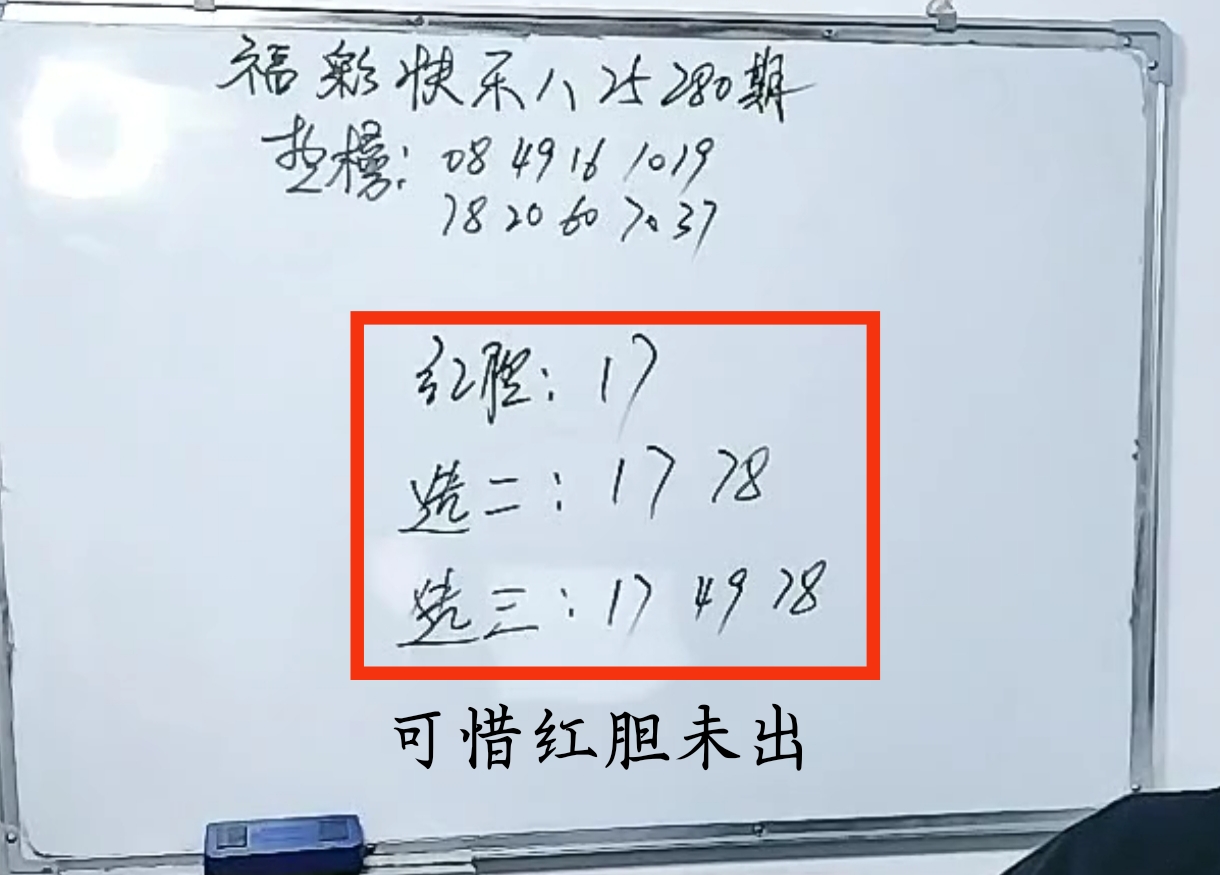 福彩快乐八25280期
垫榜: 08 49 16 10 19
78 20 60 70 37
红胆: 17
选二: 17 78
选三: 17 49 78
可惜红胆未出